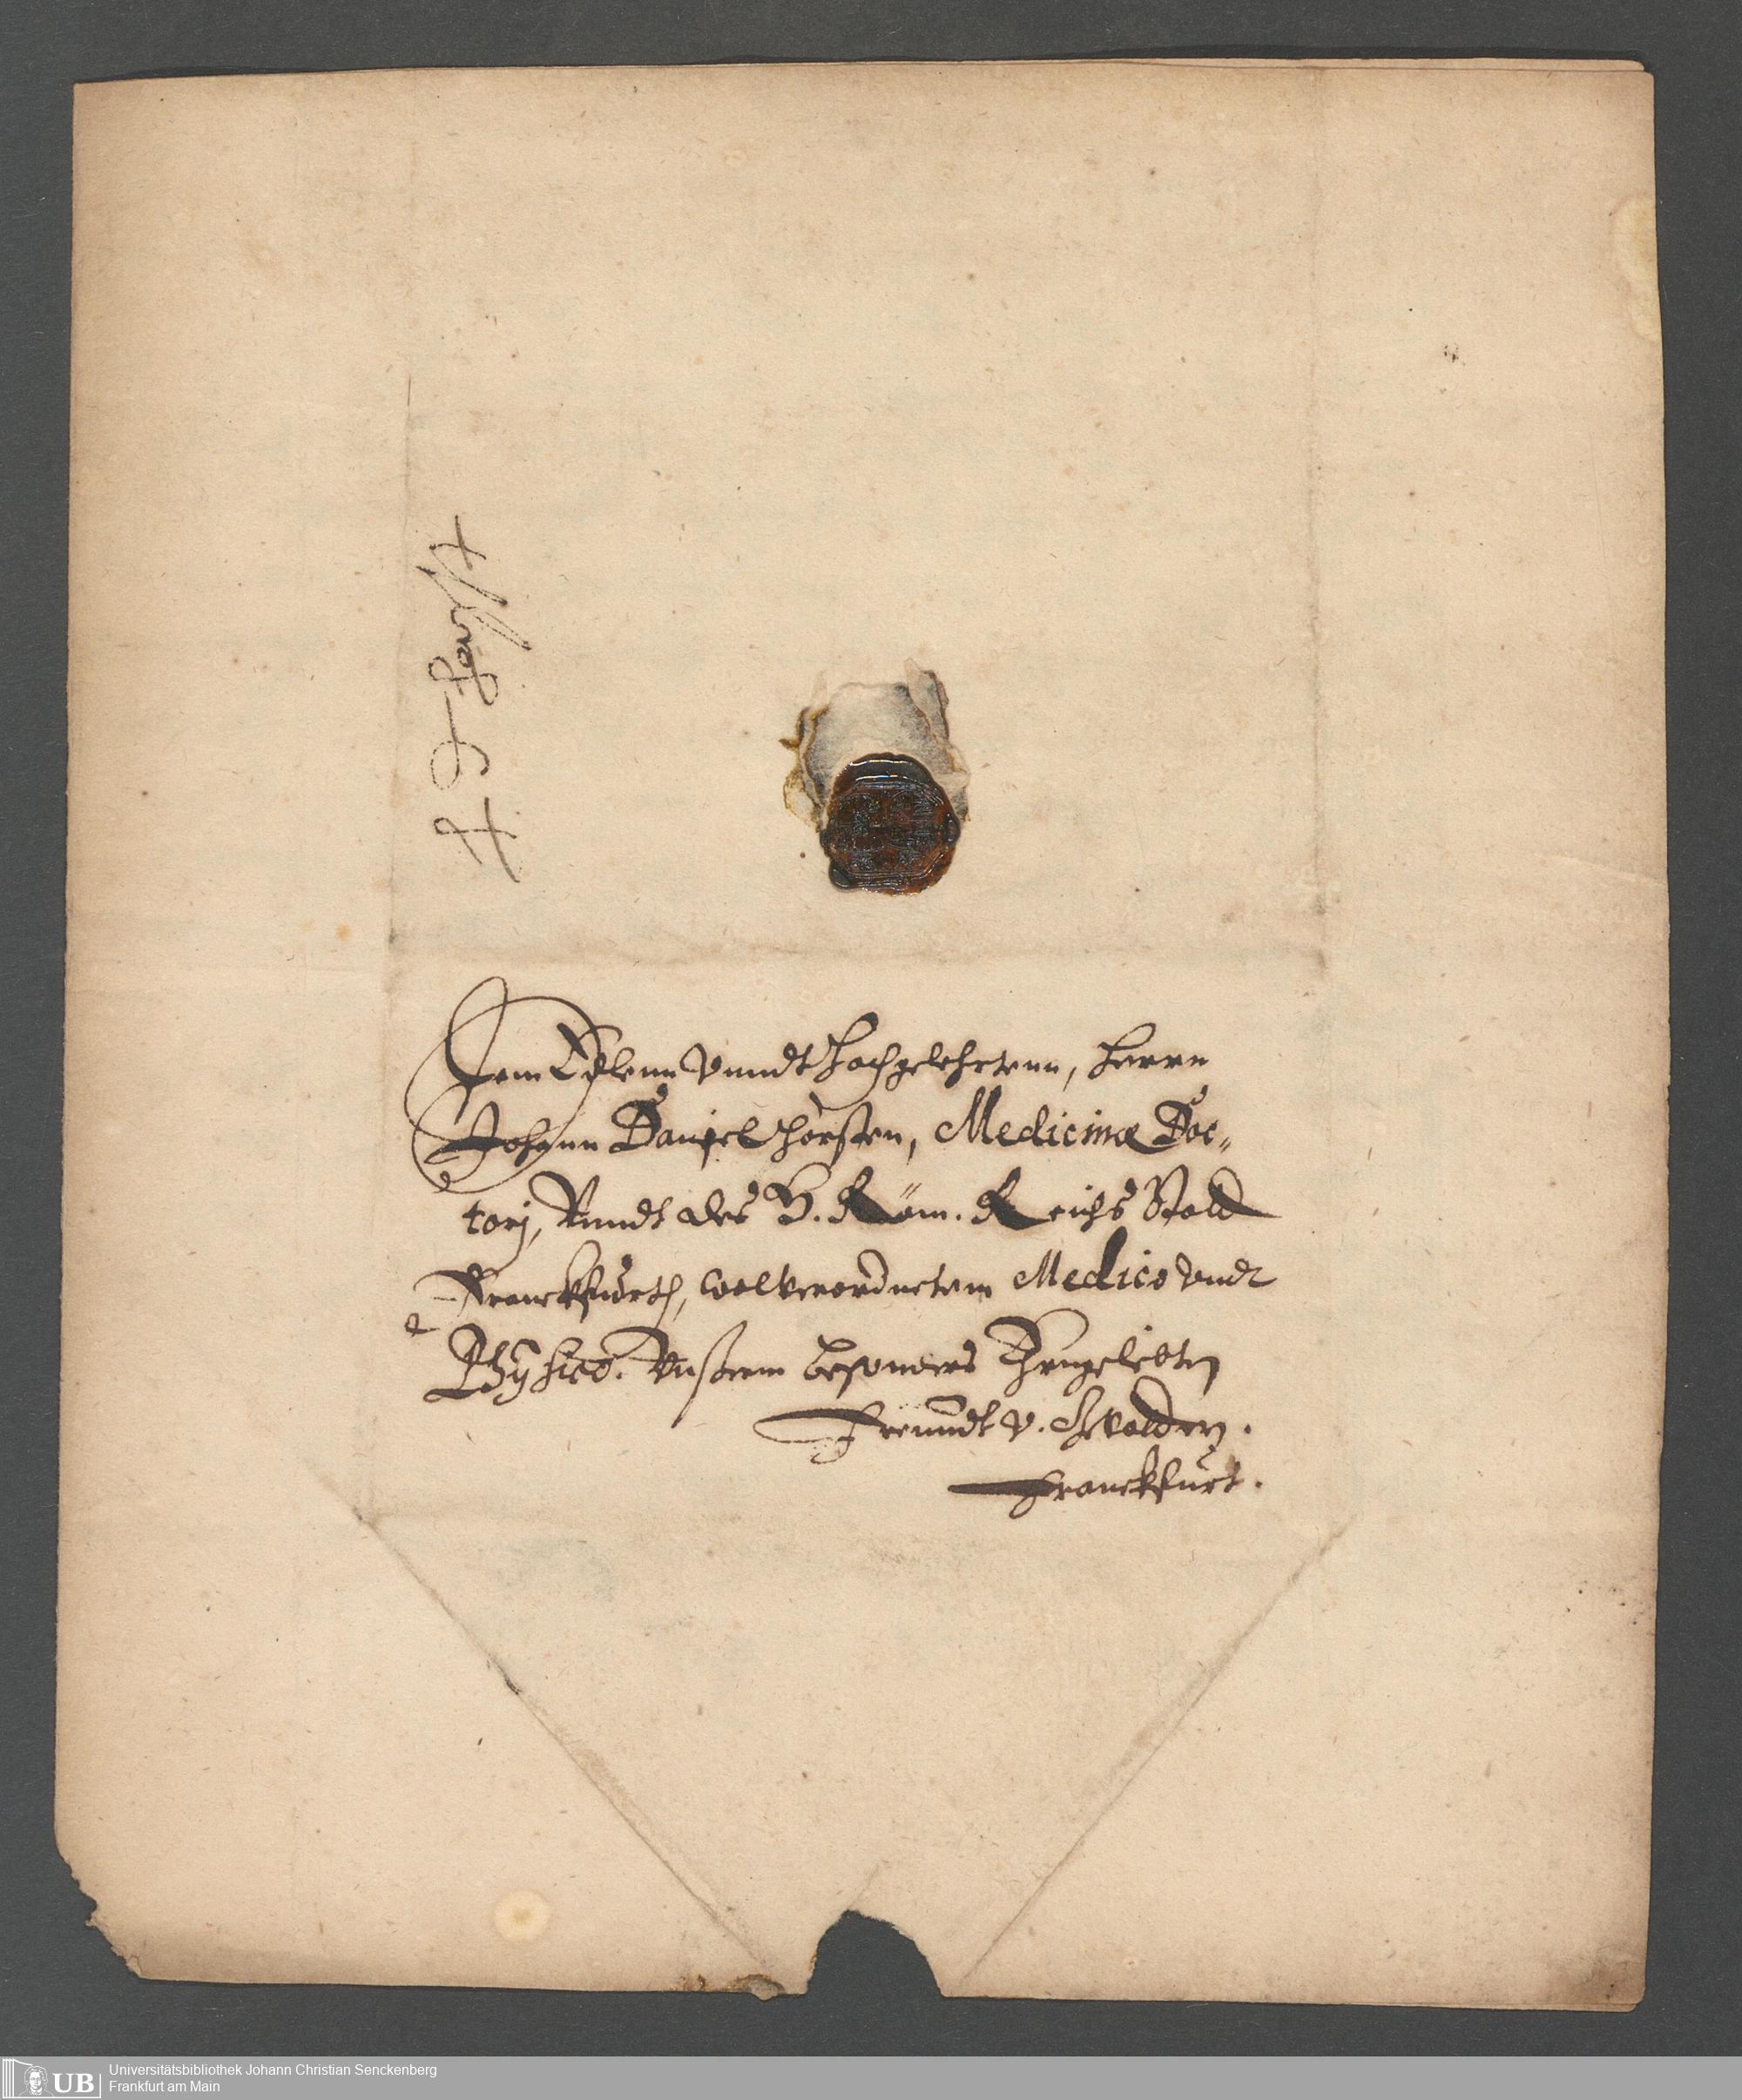 Dem Edlenn Vnndt Hochgelehrtenn, Herrn
Johann Daniel Horsten, Medicinæ Doc„
torj, Vnndt des H. Röm. Reichs Stadt
Franckfurth, wolverordnetem Medico vndt
Physico. Vnserm besonders Hrngeliebten
Freundt v. Gevattern.
Franckfurt.
UB Universitätsbibliothek Johann Christian Senckenberg
Frankfurt am Main